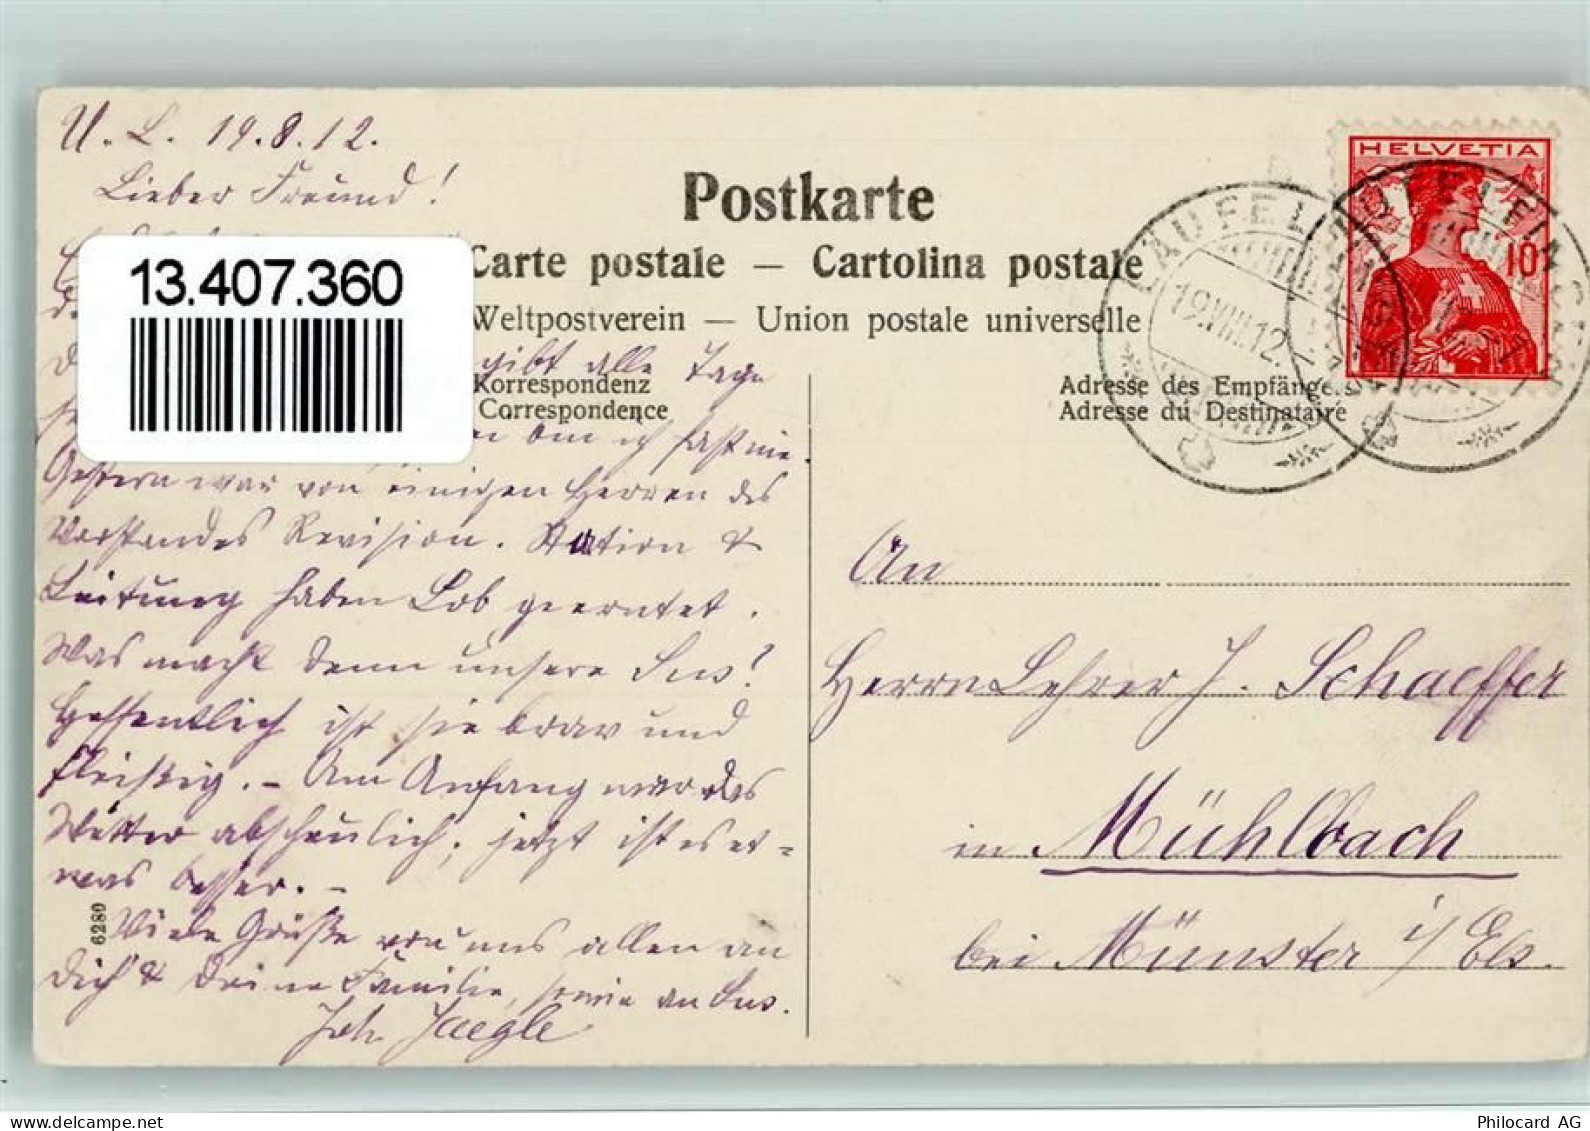 U. L. 19.8.12.
Lieber Freund!
13.407.360
gibt alle Tage
bin ich fast nie.
Gestern war von einigen Herren des
Vorstandes Revision. Station &
Leitung haben Lob geerntet.
Was macht denn unsere Sus?
Hoffentlich ist sie brav und
fleißig. – Am Anfang war das
Wetter abscheulich; jetzt ist es et=
was besser. –
Viele Grüße von uns allen an
Dich & Deine Familie, sowie an Sus.
Joh. Jaegle
6280
Postkarte
Carte postale — Cartolina postale
Weltpostverein — Union postale universelle
Korrespondenz
Correspondence
Adresse des Empfängers
Adresse du Destinataire
HELVETIA
10
LÄUFELFINGEN
19.VIII.12.
An
Herrn Lehrer J. Schaeffer
in Mühlbach
bei Münster i/Els.
www.delcampe.net
hmlux
Philocard AG